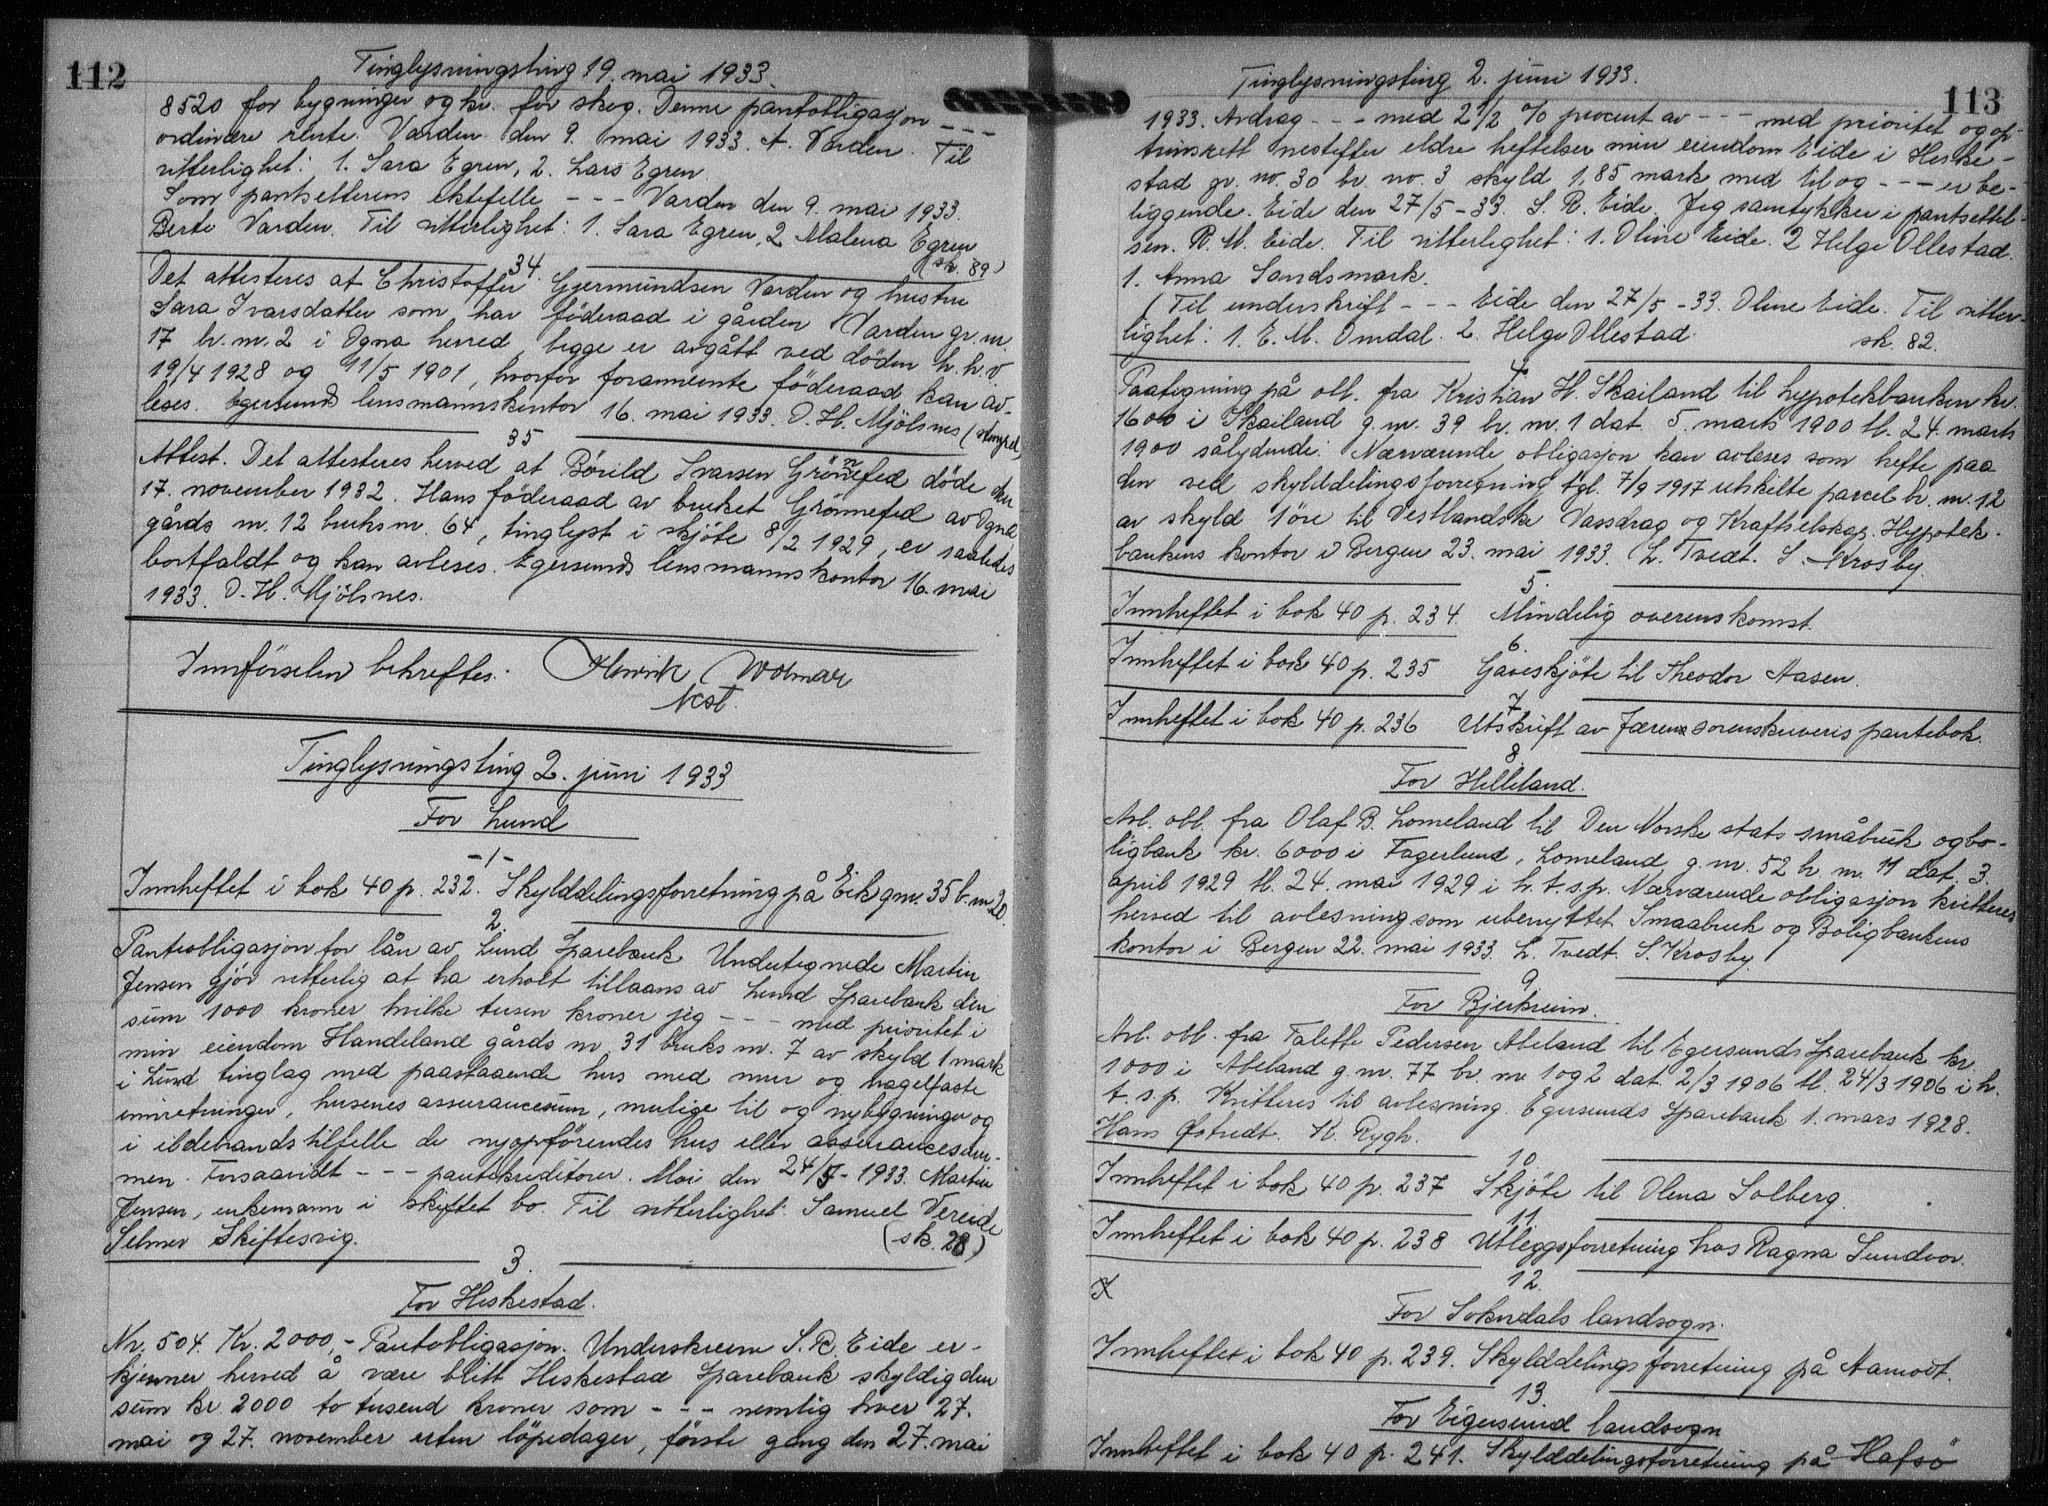 112
Tinglysningsting 19. mai 1933.
8520 for bygninger og kr. for skog. Denne pantobligasjon - - -
ordinære rente. Varden den 9. mai 1933. A. Varden. Til
vitterlighet: 1. Sara Egren, 2. Lars Egren.
Som pantsetterens ektefelle - - - Varden den 9. mai 1933.
Berte Varden. Til vitterlighet: 1. Sara Egren, 2 Malena Egren
(sk. 89)
34.
Det attesteres at Christoffer Gjermundsen Varden og hustru
Sara Ivarsdatter som har föderaad i gården Varden gr. nr.
17 br. nr. 2 i Ogna herred, begge er avgått ved döden h. h. v.
19/4 1928 og 11/5 1901, hvorfor forannevnte föderaad kan av-
leses. Egersund lensmannskontor 16. mai 1933. O. H. Mjölsnes
35
Attest. Det attesteres herved at Börild Ivarsen Grönnefed döde den
17. november 1932. Hans föderaad av bruket Grönnefed av Ogna
gårds nr. 12 bruks nr. 64, tinglyst i skjöte 8/2 1929, er saaledes
bortfaldt og kan avleses. Egersunds lensmannskontor 16. mai
1933. O. H. Mjölsnes.
Innförselen bekreftes. Henrik Wolmar
Tinglysningsting 2. juni 1933
For Lund
-1-
Innheftet i bok 40 p. 232. Skylddelingsforretning på Eik g.nr. 35 b. nr 20.
2.
Pantobligasjon for lån av Lund Sparebank. Undertegnede Martin
Jensen gjör vitterlig at ha erholt tillaans av Lund Sparebank den
sum 1000 kroner hvilke tusen kroner jeg - - - med prioritet i
min eiendom Handeland gårds nr 31 bruks nr. 7 av skyld 1 mark
i Lund tinglag med paastaaende hus med mur og nagelfaste
innretninger, husenes assurancesum, mulige til og nybygninger og
i ildebrandstilfelle de nyopförendes hus eller assurancesum-
men. Forsaavidt - - - pantekreditorer. Moi den 24/5 - 1933. Martin
Jensen, enkemann i skiftet bo. Til vitterlighet: Samuel Vereide
Selmer Skiftesvig. (sk. 28)
3.
For Heskestad.
Nr. 504. Kr. 2000,- Pantobligasjon. Underskreven S. R. Eide er-
kjenner herved å være blitt Heskestad Sparebank skyldig den
sum kr. 2000 to tusend kroner som - - - nemlig hver 27.
mai og 27. november uten löpedager, förste gang den 27. mai
113
Tinglysningsting 2. juni 1933.
1933. Avdrag - - - med 2 1/2 % procent av - - - med prioritet og op-
trinsrett nestefter eldre heftelser min eiendom Eide i Heske-
stad gr. no. 30 br. no. 3 skyld 1,85 mark med til og - - - er be-
liggende. Eide den 27/5 - 33. S. R. Eide. Jeg samtykker i pantsettel-
sen. R. M. Eide. Til vitterlighet: 1. Oline Eide. 2 Helge Ollestad.
1. Anna Sandsmark.
(Til underskrift - - - Eide den 27/5 - 33. Oline Eide. Til vitter-
lighet: 1. E. M. Omdal. 2. Helge Ollestad. sk. 82.
4
Paategning på obl. fra Kristian H. Skailand til hypotekbanken kr.
1600 i Skailand g. nr. 39 br. nr. 1 dat. 5. marts 1900 tl. 24. marts
1900 sålydende: Nærværende obligasjon kan avleses som hefte paa
den ved skylddelingsforretning tgl. 7/9 1917 utskilte parcel br. nr. 12
av skyld 1 öre til Vestlandske Vassdrag og Kraftselskap. Hypotek-
bankens kontor i Bergen 23. mai 1933. L. Tvedt. S. Krosby.
5.
Innheftet i bok 40 p. 234. Mindelig overenskomst.
6
Innheftet i bok 40 p. 235 Gaveskjöte til Theodor Aasen.
7
Innheftet i bok 40 p. 236 Utskrift av Jæren sorenskriveris pantebok.
8.
For Helleland.
Avl. obl. fra Olaf B. Lomeland til Den Norske stats småbruk og bo-
ligbank kr. 6000 i Fagerlund, Lomeland g. nr. 52 b. nr. 11 dat. 3.
april 1929 tl. 24. mai 1929 i h. t. s. p. Nærværende obligasjon kvitteres
herved til avlesning som ubenyttet. Smaabruk og Boligbankens
kontor i Bergen 22. mai 1933. L. Tvedt. S. Krosby.
9
For Bjerkreim.
Avl. obl. fra Talette Pedersen Abeland til Egersunds Sparebank kr.
1000 i Abeland g. nr. 77 br. nr 1 og 2 dat. 2/3 1906 tl. 24/3 1906 i h.
t. s. p. Kvitteres til avlesning. Egersunds Sparebank 1. mars 1928.
Hans Östvedt. K. Rygh.
10
Innheftet i bok 40 p. 237 Skjöte til Olena Solberg.
11
Innheftet i bok 40 p. 238 Utleggsforretning hos Ragna Sundvor.
12.
X
For Sokndals landsogn.
Innheftet i bok 40 p. 239. Skylddelingsforretning på Aamodt.
13.
For Eigersund landsogn
Innheftet i bok 40 p. 241. Skylddelingsforretning på Hafsö